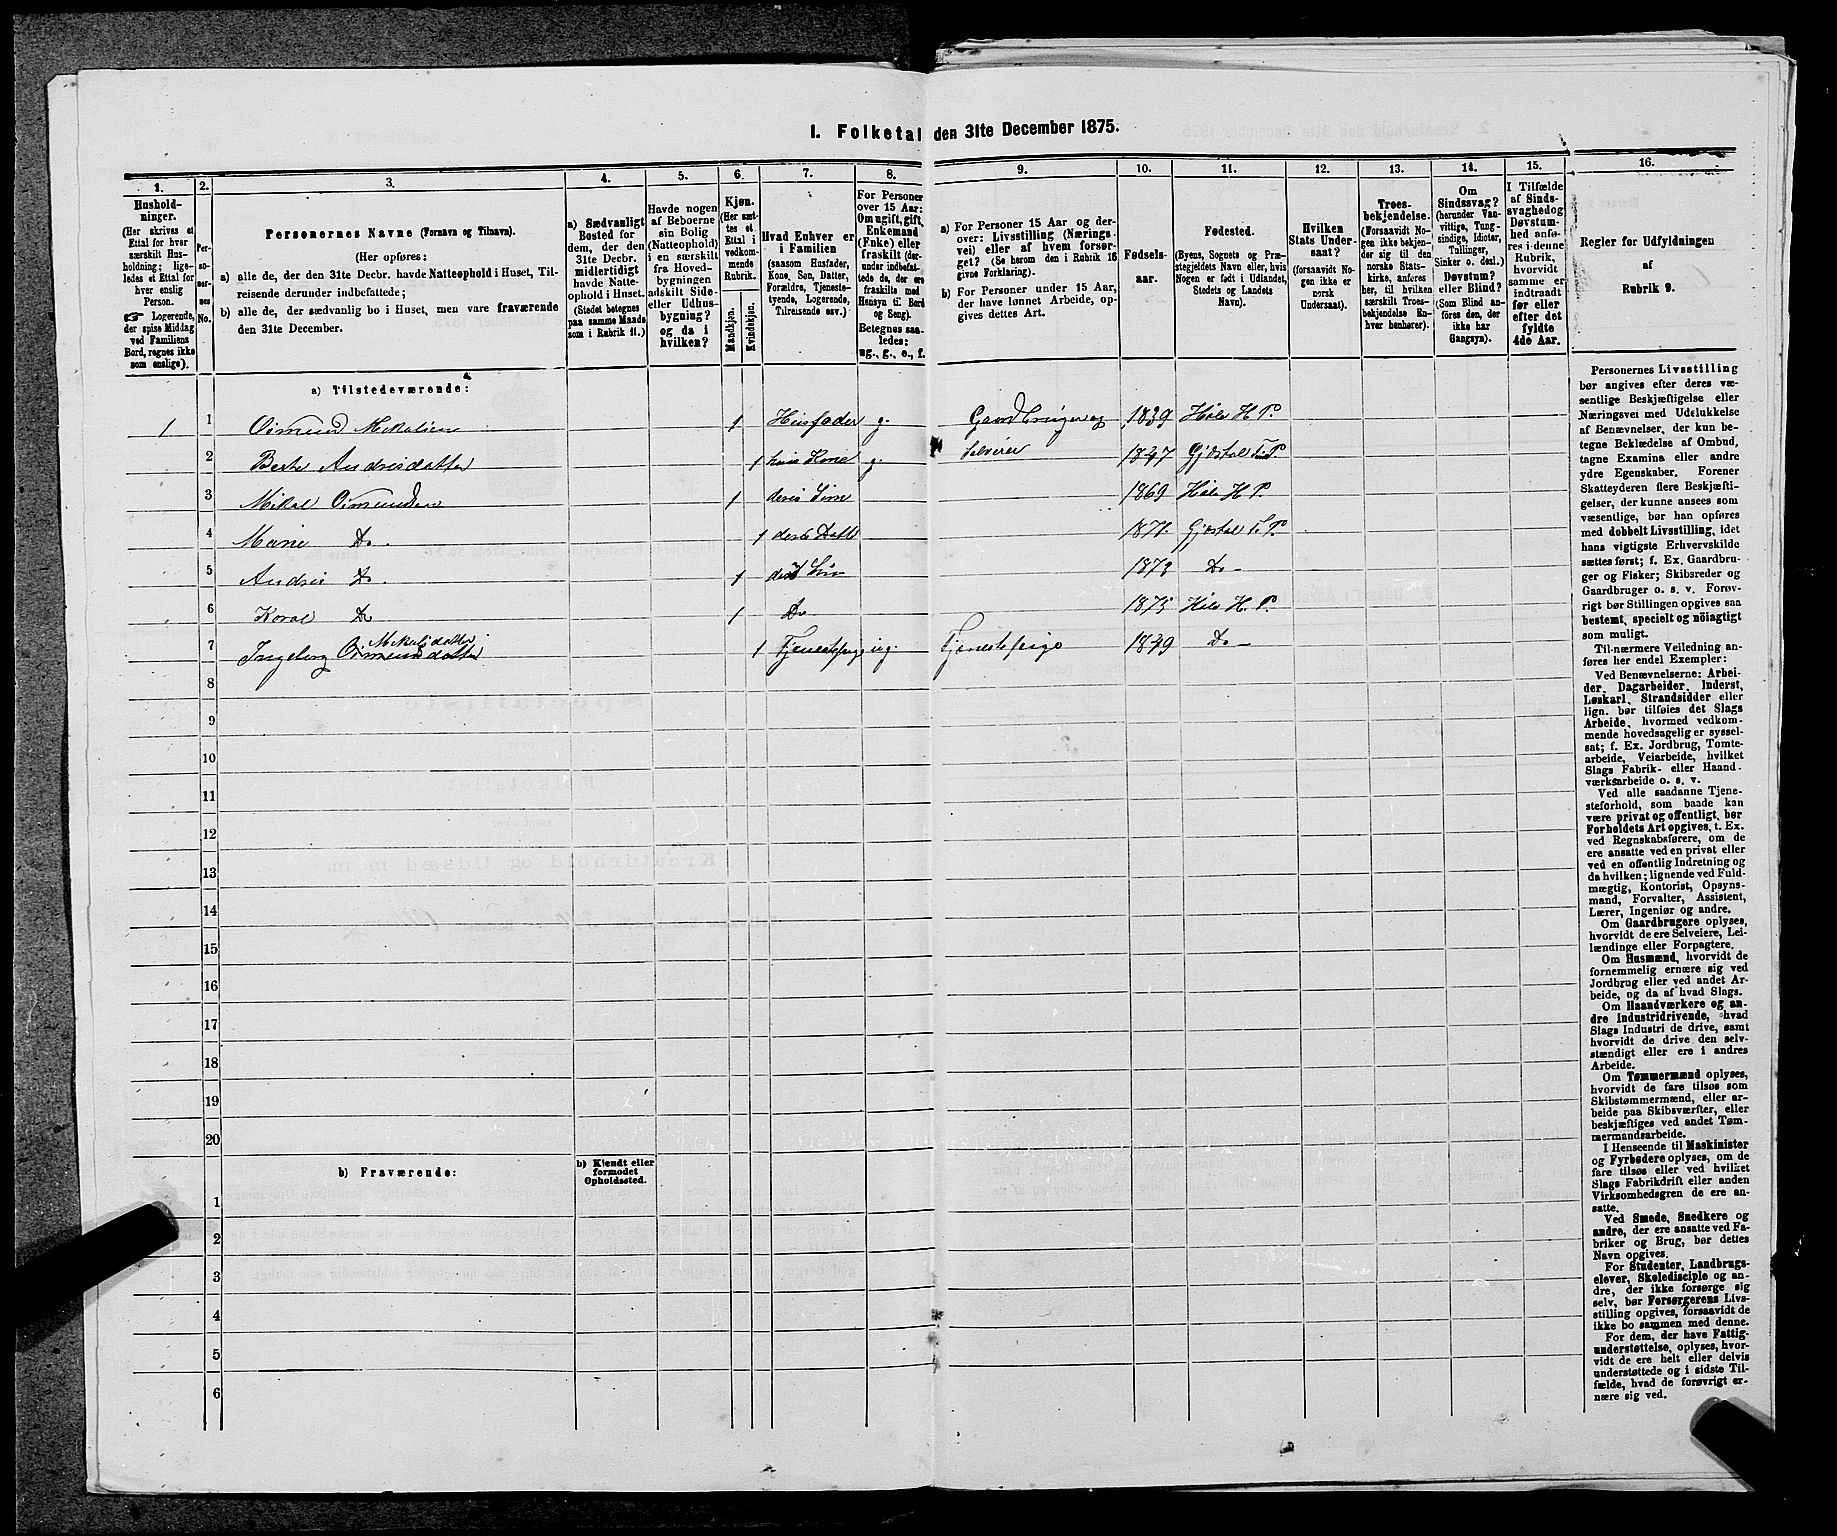 1. Folketal den 31te December 1875.
1.
2.
3.
4.
5.
6.
7.
8.
9.
10.
11.
12.
13.
14.
15.
16.
Hushold-
ninger.
(Her skrives et
Ettal for hver
særskilt Hus-
holdning; lige-
ledes et Ettal for
hver enslig
Person.
☞ Logerende,
der spise Middag
ved Familiens
Bord, regnes ikke
som enslige).
Per-
so-
ner-
nes
No.
Personernes Navne (Fornavn og Tilnavn).
(Her opføres:
a) alle de, der den 31te Decbr. havde Natteophold i Huset, Til-
reisende derunder indbefattede;
b) alle de, der sædvanlig bo i Huset, men vare fraværende
den 31te December.
a) Sædvanligt
Bosted for
dem, der den
31te Decbr.
midlertidigt
havde Natte-
ophold i Huset.
(Stedet betegnes
paa samme Maade
som i Rubrik 11.)
Havde nogen
af Beboerne
sin Bolig
(Natteophold)
i en særskilt
fra Hoved-
bygningen
adskilt Side-
eller Udhus-
bygning?
og da i
hvilken?
Kjøn.
(Her sæt-
tes et
Ettal i
vedkom-
mende
Rubrik.
Mandkjøn.
Kvindekjøn.
Hvad Enhver er
i Familien
(saasom Husfader,
Kone, Søn, Datter,
Forældre, Tjeneste-
tyende, Logerende,
Tilreisende osv.)
For Personer
over 15 Aar:
Om ugift, gift,
Enkemand
(Enke) eller
fraskilt (der-
under indbefat-
tede de, der ere
fraskilte med
Hensyn til Bord
og Seng).
Betegnes saa-
ledes:
ug., g., e., f.
a) For Personer 15 Aar og der-
over: Livsstilling (Nærings-
vei) eller af hvem forsør-
get? (Se herom den i Rubrik 16
givne Forklaring).
b) For Personer under 15 Aar,
der have lønnet Arbeide, op-
gives dettes Art.
Fødsels-
aar.
Fødested.
(Byens, Sognets og Præ-
stegjeldets Navn eller, hvis
Nogen er født i Udlandet,
Stedets og Landets
Navn).
Hvilken
Stats Under-
saat?
(forsaavidt No-
gen ikke er
norsk
Undersaat).
Troes-
bekjendelse.
(Forsaavidt No-
gen ikke bekjen-
der sig til den
norske Stats-
kirke, anføres
her, til hvilken
særskilt Troes-
bekjendelse En-
hver henhører).
Om
Sindssvag?
(herunder Van-
vittige, Tung-
sindige, Idioter,
Tullinger,
Sinker o. desl.)
Døvstum?
eller Blind?
(Som Blind an-
føres den, der
ikke har
Gangsyn).
I Tilfælde
af Sinds-
svaghed og
Døvstum-
hed anfø-
res i denne
Rubrik,
hvorvidt
samme er
indtraadt
før eller
efter det
fyldte
4de Aar.
Regler for Udfyldningen
af
Rubrik 9.
a) Tilstedeværende:
1 1 Osmund Mekalsen 1 Husfader g. Gaardbruger og 1839 Høle H. P.
2 Berte Andrisdatter 1 hans Kone g. Selveier 1847 Gjæstal S.P.
3 Mikal Osmundsen 1 deres Søn 1869 Høle H P.
4 Marie Do. 1 deres Datt 1871 Gjæstal S. P.
5 Andris Do. 1 deres Søn 1873 Do -
6 Do 1 Do 1875 Høle H. P.
Mekalsdatter
7 Ingeborg Osmundsdatter 1 Tjenestpige ug. Tjenestepige 1849 Do -
8
9
10
11
12
13
14
15
16
17
18
19
20
b) Fraværende:
b) Kjendt eller
formodet
Opholdssted.
1
2
3
4
5
6
Personernes Livsstilling
bør angives efter deres væ-
sentlige Beskjæftigelse eller
Næringsvei med Udelukkelse
af Benævnelser, der kun be-
tegne Beklædelse af Ombud,
tagne Examina eller andre
ydre Egenskaber. Forener
Skatteyderen flere Beskjæfti-
gelser, der kunne ansees som
væsentlige, bør han opføres
med dobbelt Livsstilling, idet
hans vigtigste Erhvervskilde
sættes først; f. Ex. Gaardbru-
ger og Fisker; Skibsreder og
Gaardbruger o. s. v. Forøv-
rigt bør Stillingen opgives saa
bestemt, specielt og nöiagtigt
som muligt.
Til nærmere Veiledning an-
føres her endel Exempler:
Ved Benævnelserne: Arbei-
der, Dagarbeider, Inderst,
Løskarl, Strandsidder eller
lign. bør tilføies det Slags
Arbeide, hvormed vedkom-
mende hovedsagelig er syssel-
sat; f. Ex. Jordbrug, Tomte-
arbeide, Veiarbeide, hvilket
Slags Fabrik- eller Haand-
værksarbeide o. s. v.
Ved alle saadanne Tjene-
steforhold, som baade kan
være privat og offentligt, bør
Forholdets Art opgives, t. Ex.
ved Regnskabsførere, om de
ere ansatte ved en privat eller
ved en offentlig Indretning og
da hvilken; lignende ved Fuld-
mægtig, Kontorist, Opsyns-
mand, Forvalter, Assistent,
Lærer, Ingeniør og andre.
Om Gaardbrugere oplyses,
hvorvidt de ere Selveiere, Lei-
lændinge eller Forpagtere.
Om Husmænd, hvorvidt de
fornemmelig ernære sig ved
Jordbrug eller ved andet Ar-
beide, og da af hvad Slags.
Om Haandværkere og an-
dre Industridrivende, hvad
Slags Industri de drive, samt
hvorvidt de drive den selv-
stændigt eller ere i andres
Arbeide.
Om Tømmermænd oplyses,
hvorvidt de fare tilsøs som
Skibstømmermænd, eller ar-
beide paa Skibsværfter, eller
beskjæftiges ved andet Tøm-
mermandsarbeide.
I Henseende til Maskinister
og Fyrbødere oplyses, om de
fare tilsøs eller ved hvilket
Slags Fabrikdrift eller anden
Virksomhedsgren de ere an-
satte.
Ved Smede, Snedkere og
andre, der ere ansatte ved Fa-
briker og Brug, bør dettes
Navn opgives.
For Studenter, Landbrugs-
elever, Skoledisciple og an-
dre, der ikke forsørge sig
selv, bør Forsørgerens Livs-
stilling opgives, forsaavidt de
ikke bo sammen med denne.
For dem, der have Fattig-
understøttelse, oplyses, hvor-
vidt de ere helt eller delvis
understøttede og i sidste Til-
fælde, hvad de forøvrigt er-
nære sig ved.